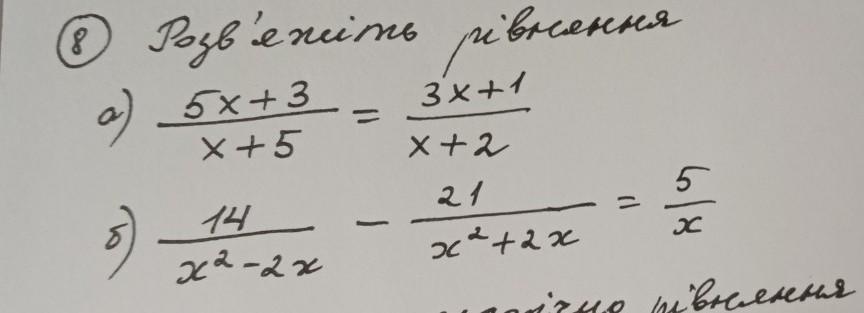 8 Розв'яжіть рівняння
а) (5x+3)/(x+5) = (3x+1)/(x+2)
б) 14/(x²-2x) - 21/(x²+2x) = 5/x
рівняння